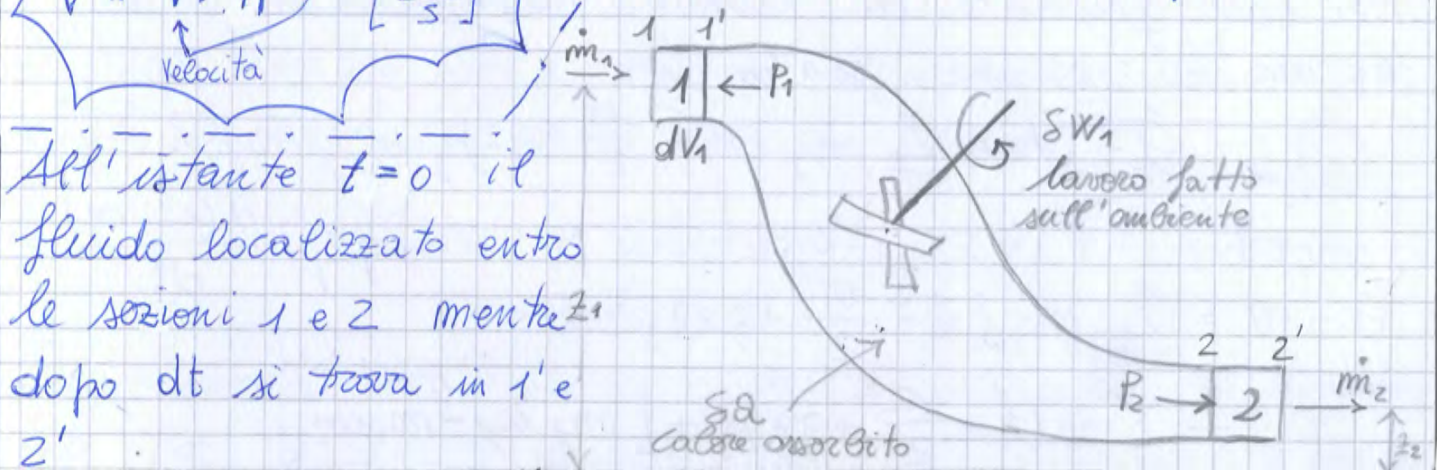 Velocità
All'istante t=0 il
fluido localizzato entro
le sezioni 1 e 2 mentre
dopo dt si trova in 1' e
2'
1 1'
ṁ₁
1 ← P₁
dV₁
δW₁
lavoro fatto
sull'ambiente
z₁
δQ
calore assorbito
2 2'
P₂ → 2
ṁ₂
z₂